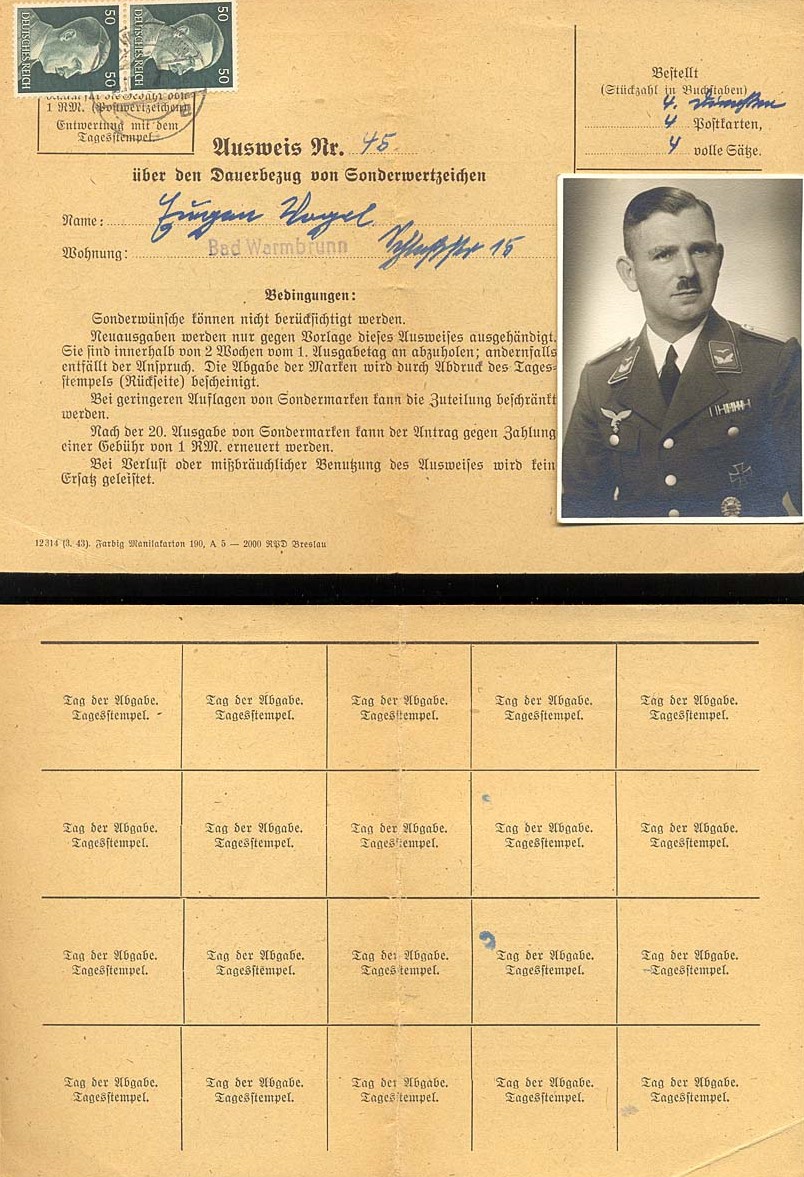 50 50
DEUTSCHES REICH DEUTSCHES REICH
50 50
1 RM. (Postwertzeichen)
Entwertung mit dem
Tagesstempel.
E
Bestellt
(Stückzahl in Buchstaben)
4.
4 Postkarten,
4 volle Sätze.
Ausweis Nr. 45
über den Dauerbezug von Sonderwertzeichen
Name: Eugen Vogel
Wohnung: Bad Warmbrunn Schloßstr 15
Bedingungen:
Sonderwünsche können nicht berücksichtigt werden.
Neuausgaben werden nur gegen Vorlage dieses Ausweises ausgehändigt.
Sie sind innerhalb von 2 Wochen vom 1. Ausgabetag an abzuholen; andernfalls
entfällt der Anspruch. Die Abgabe der Marken wird durch Abdruck des Tages-
stempels (Rückseite) bescheinigt.
Bei geringeren Auflagen von Sondermarken kann die Zuteilung beschränkt
werden.
Nach der 20. Ausgabe von Sondermarken kann der Antrag gegen Zahlung
einer Gebühr von 1 RM. erneuert werden.
Bei Verlust oder mißbräuchlicher Benutzung des Ausweises wird kein
Ersatz geleistet.
12314 (3. 43). Farbig Manilakarton 190, A 5 — 2000 RPD Breslau
Tag der Abgabe. Tag der Abgabe. Tag der Abgabe. Tag der Abgabe. Tag der Abgabe.
Tagesstempel. Tagesstempel. Tagesstempel. Tagesstempel. Tagesstempel.
Tag der Abgabe. Tag der Abgabe. Tag der Abgabe. Tag der Abgabe. Tag der Abgabe.
Tagesstempel. Tagesstempel. Tagesstempel. Tagesstempel. Tagesstempel.
Tag der Abgabe. Tag der Abgabe. Tag der Abgabe. Tag der Abgabe. Tag der Abgabe.
Tagesstempel. Tagesstempel. Tagesstempel. Tagesstempel. Tagesstempel.
Tag der Abgabe. Tag der Abgabe. Tag der Abgabe. Tag der Abgabe. Tag der Abgabe.
Tagesstempel. Tagesstempel. Tagesstempel. Tagesstempel. Tagesstempel.